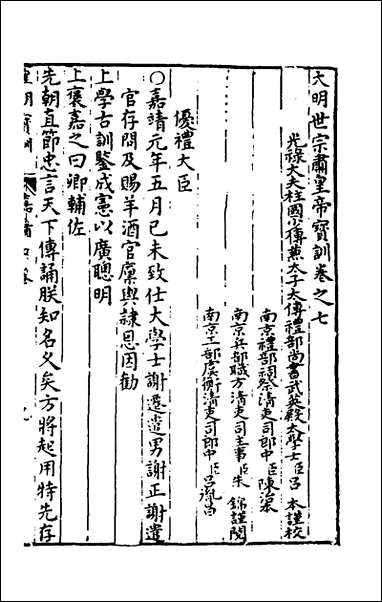 大明世宗肅皇帝寶訓卷之七
光祿大夫柱國少傅兼太子太傅禮部尚書武英殿大學士臣呂 本謹校
南京禮部祠祭清吏司郎中臣陳
南京兵部職方清吏司主事臣朱 錦謹閱
南京工部虞衡清吏司郎中臣呂胤昌
優禮大臣
○嘉靖元年五月己未致仕大學士謝遷遣男謝正謝遣
官存問及賜羊酒官廩輿隸恩因勸
上學古訓鑒成憲以廣聰明
上褒嘉之曰卿輔佐
先朝直節忠言天下傳誦朕知名久矣方將起用特先存